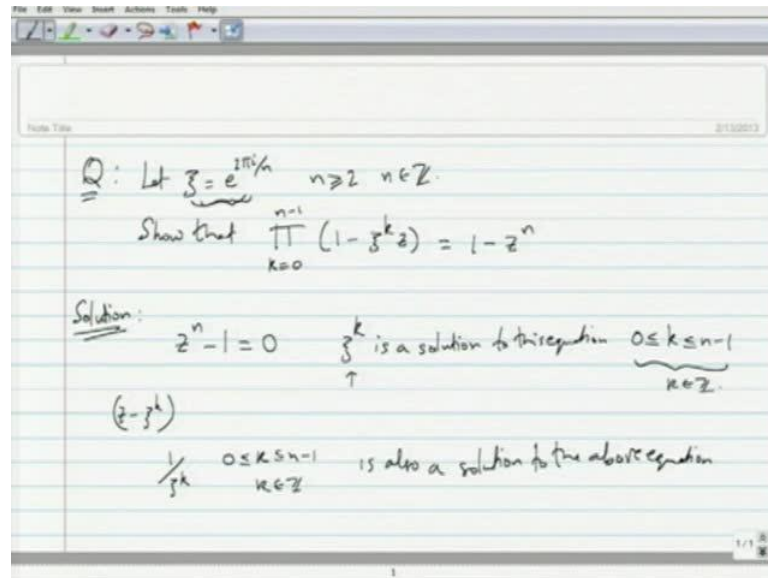 File Edit View Insert Actions Tools Help
Note Title
2/13/2013
Q: Let ξ = e^{2πi/n} n≥2 n∈ℤ.
Show that ∏_{k=0}^{n-1} (1 - ξ^k z) = 1 - z^n
Solution:
z^n - 1 = 0 ξ^k is a solution to this equation 0 ≤ k ≤ n-1
↑ k∈ℤ.
(z - ξ^k)
1/ξ^k 0 ≤ k ≤ n-1 is also a solution to the above equation
k∈ℤ
1/1
1